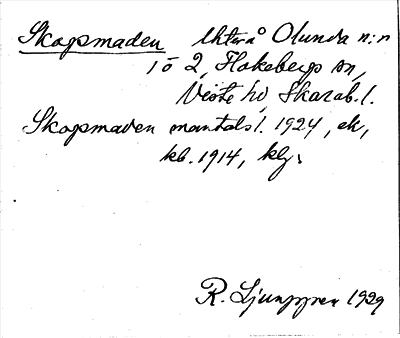 Skogsmaden Uterå Olunda n:n
1 o 2, Flakebergs sn,
Viste hd, Skarab. l.
Skogsmaden mantals l. 1924, ek,
kb. 1914, klg.
R. Ljunggren 1929